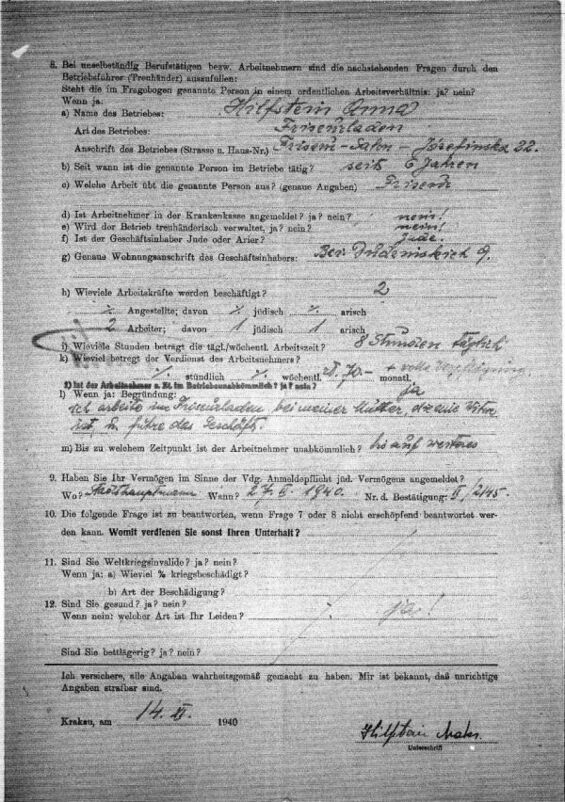 8. Bei unselbständig Berufstätigen bezw. Arbeitnehmern sind die nachstehenden Fragen durch den
Betriebsführer (Treuhänder) auszufüllen:
Steht die im Fragebogen genannte Person in einem ordentlichen Arbeitsverhältnis: ja? nein?
Wenn ja:
a) Name des Betriebes: Hilfstein Anna
Art des Betriebes: Friseurladen
Anschrift des Betriebes (Strasse u. Haus-Nr.) Friseur-Salon - Józefinska 22.
b) Seit wann ist die genannte Person im Betriebe tätig? seit 6 Jahren
c) Welche Arbeit übt die genannte Person aus? (genaue Angaben)
d) Ist Arbeitnehmer in der Krankenkasse angemeldet? ja? nein? nein!
e) Wird der Betrieb treuhänderisch verwaltet, ja? nein? nein!
f) Ist der Geschäftsinhaber Jude oder Arier? Jude.
g) Genaue Wohnungsanschrift des Geschäftsinhabers: 9.
h) Wieviele Arbeitskräfte werden beschäftigt? 2
Angestellte; davon jüdisch arisch
2 Arbeiter; davon 1 jüdisch 1 arisch
i) Wieviele Stunden beträgt die tägl./wöchentl. Arbeitszeit? 8 Stunden täglich
k) Wieviel betregt der Verdienst des Arbeitsnehmers? + volle Verpflegung
stündlich wöchentl. zł. 70.- monatl.
l) Ist der Arbeitnehmer z. Zt. im Betriebe unabkömmlich? ja? nein? ja
l) Wenn ja: Begründung:
ich arbeite im Friseurladen bei meiner Mutter, die eine Witwe
ist, u. führe das Geschäft.
m) Bis zu welchem Zeitpunkt ist der Arbeitnehmer unabkömmlich? bis auf weiteres
9. Haben Sie Ihr Vermögen im Sinne der Vdg. Anmeldepflicht jüd. Vermögens angemeldet?
Wo? Stadthauptmann Wann? 1940. Nr. d. Bestätigung: II/2145.
10. Die folgende Frage ist zu beantworten, wenn Frage 7 oder 8 nicht erschöpfend beantwortet wer-
den kann. Womit verdienen Sie sonst Ihren Unterhalt?
11. Sind Sie Weltkriegsinvalide? ja? nein?
Wenn ja: a) Wieviel % kriegsbeschädigt?
b) Art der Beschädigung?
12. Sind Sie gesund? ja? nein? ja!
Wenn nein: welcher Art ist Ihr Leiden?
Sind Sie bettlägerig? ja? nein?
Ich versichere, alle Angaben wahrheitsgemäß gemacht zu haben. Mir ist bekannt, daß unrichtige
Angaben strafbar sind.
Krakau, am 14. XI. 1940
Hilfstein Maks.
Unterschrift